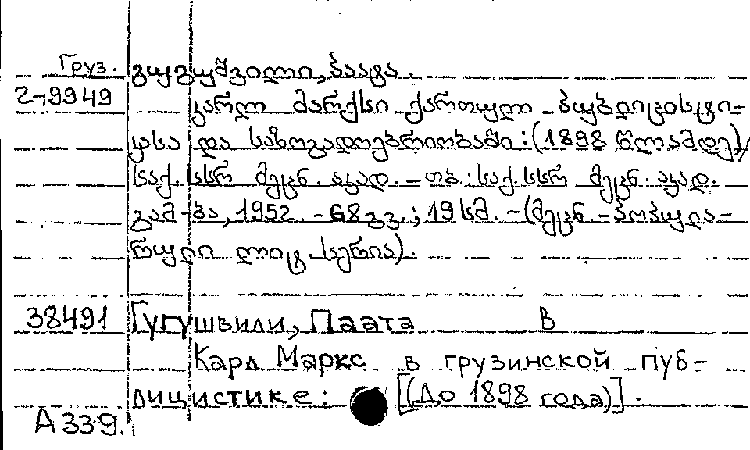 Груз. გუგუშვილი, პაატა.
2-9949 კარლ მარქსი ქართულ პუბლიცისტი-
კასა და საზოგადოებრიობაში: (1898 წლამდე)/
საქ. სსრ მეცნ. აკად. - თბ.: საქ. სსრ მეცნ. აკად.
გამ-ბა, 1952. - 68 გვ.; 19 სმ. - (მეცნ.-პოპულა-
რული ლიტ. სერია).
38491 Гугушвили, Паата В
Карл Маркс в грузинской пуб-
лицистике: [(До 1898 года)].
А 339.